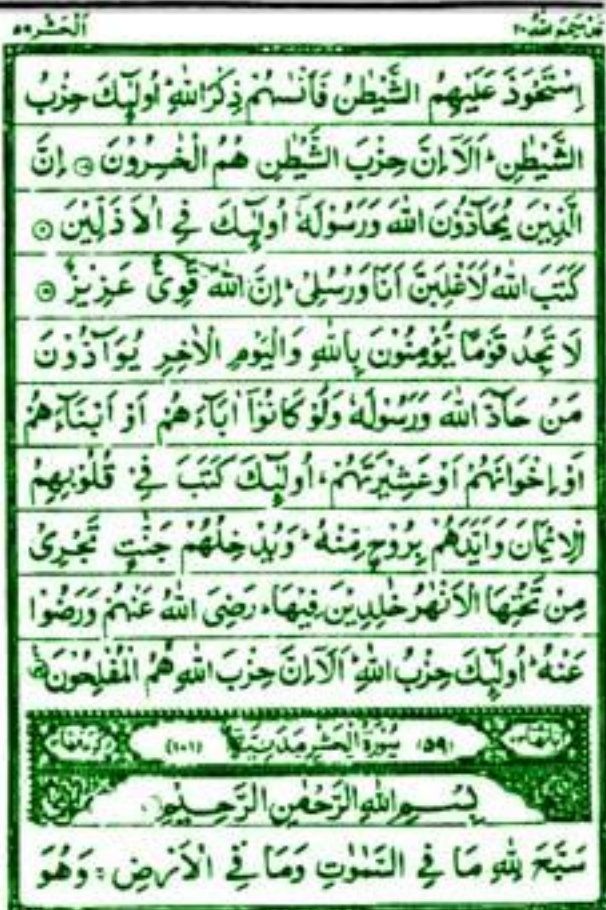 قد سمع الله ٢٨
الحشر ٥٩
اِسْتَحْوَذَ عَلَيْهِمُ الشَّيْطٰنُ فَاَنْسٰىهُمْ ذِكْرَ اللّٰهِ ؕ اُولٰٓئِكَ حِزْبُ
الشَّيْطٰنِ ؕ اَلَاۤ اِنَّ حِزْبَ الشَّيْطٰنِ هُمُ الْخٰسِرُوْنَ ۝ اِنَّ
الَّذِيْنَ يُحَآدُّوْنَ اللّٰهَ وَرَسُوْلَهٗۤ اُولٰٓئِكَ فِي الْاَذَلِّيْنَ ۝
كَتَبَ اللّٰهُ لَاَغْلِبَنَّ اَنَا وَرُسُلِيْ ؕ اِنَّ اللّٰهَ قَوِيٌّ عَزِيْزٌ ۝
لَا تَجِدُ قَوْمًا يُّؤْمِنُوْنَ بِاللّٰهِ وَالْيَوْمِ الْاٰخِرِ يُوَآدُّوْنَ
مَنْ حَآدَّ اللّٰهَ وَرَسُوْلَهٗ وَلَوْ كَانُوْۤا اٰبَآءَهُمْ اَوْ اَبْنَآءَهُمْ
اَوْ اِخْوَانَهُمْ اَوْ عَشِيْرَتَهُمْ ؕ اُولٰٓئِكَ كَتَبَ فِيْ قُلُوْبِهِمُ
الْاِيْمَانَ وَاَيَّدَهُمْ بِرُوْحٍ مِّنْهُ ؕ وَيُدْخِلُهُمْ جَنّٰتٍ تَجْرِيْ
مِنْ تَحْتِهَا الْاَنْهٰرُ خٰلِدِيْنَ فِيْهَا ؕ رَضِيَ اللّٰهُ عَنْهُمْ وَرَضُوْا
عَنْهُ ؕ اُولٰٓئِكَ حِزْبُ اللّٰهِ ؕ اَلَاۤ اِنَّ حِزْبَ اللّٰهِ هُمُ الْمُفْلِحُوْنَ
(٥٩) سُوْرَةُ الْحَشْرِ مَدَنِيَّةٌ (١٠١)
بِسْمِ اللّٰهِ الرَّحْمٰنِ الرَّحِيْمِ
سَبَّحَ لِلّٰهِ مَا فِي السَّمٰوٰتِ وَمَا فِي الْاَرْضِ ۚ وَهُوَ